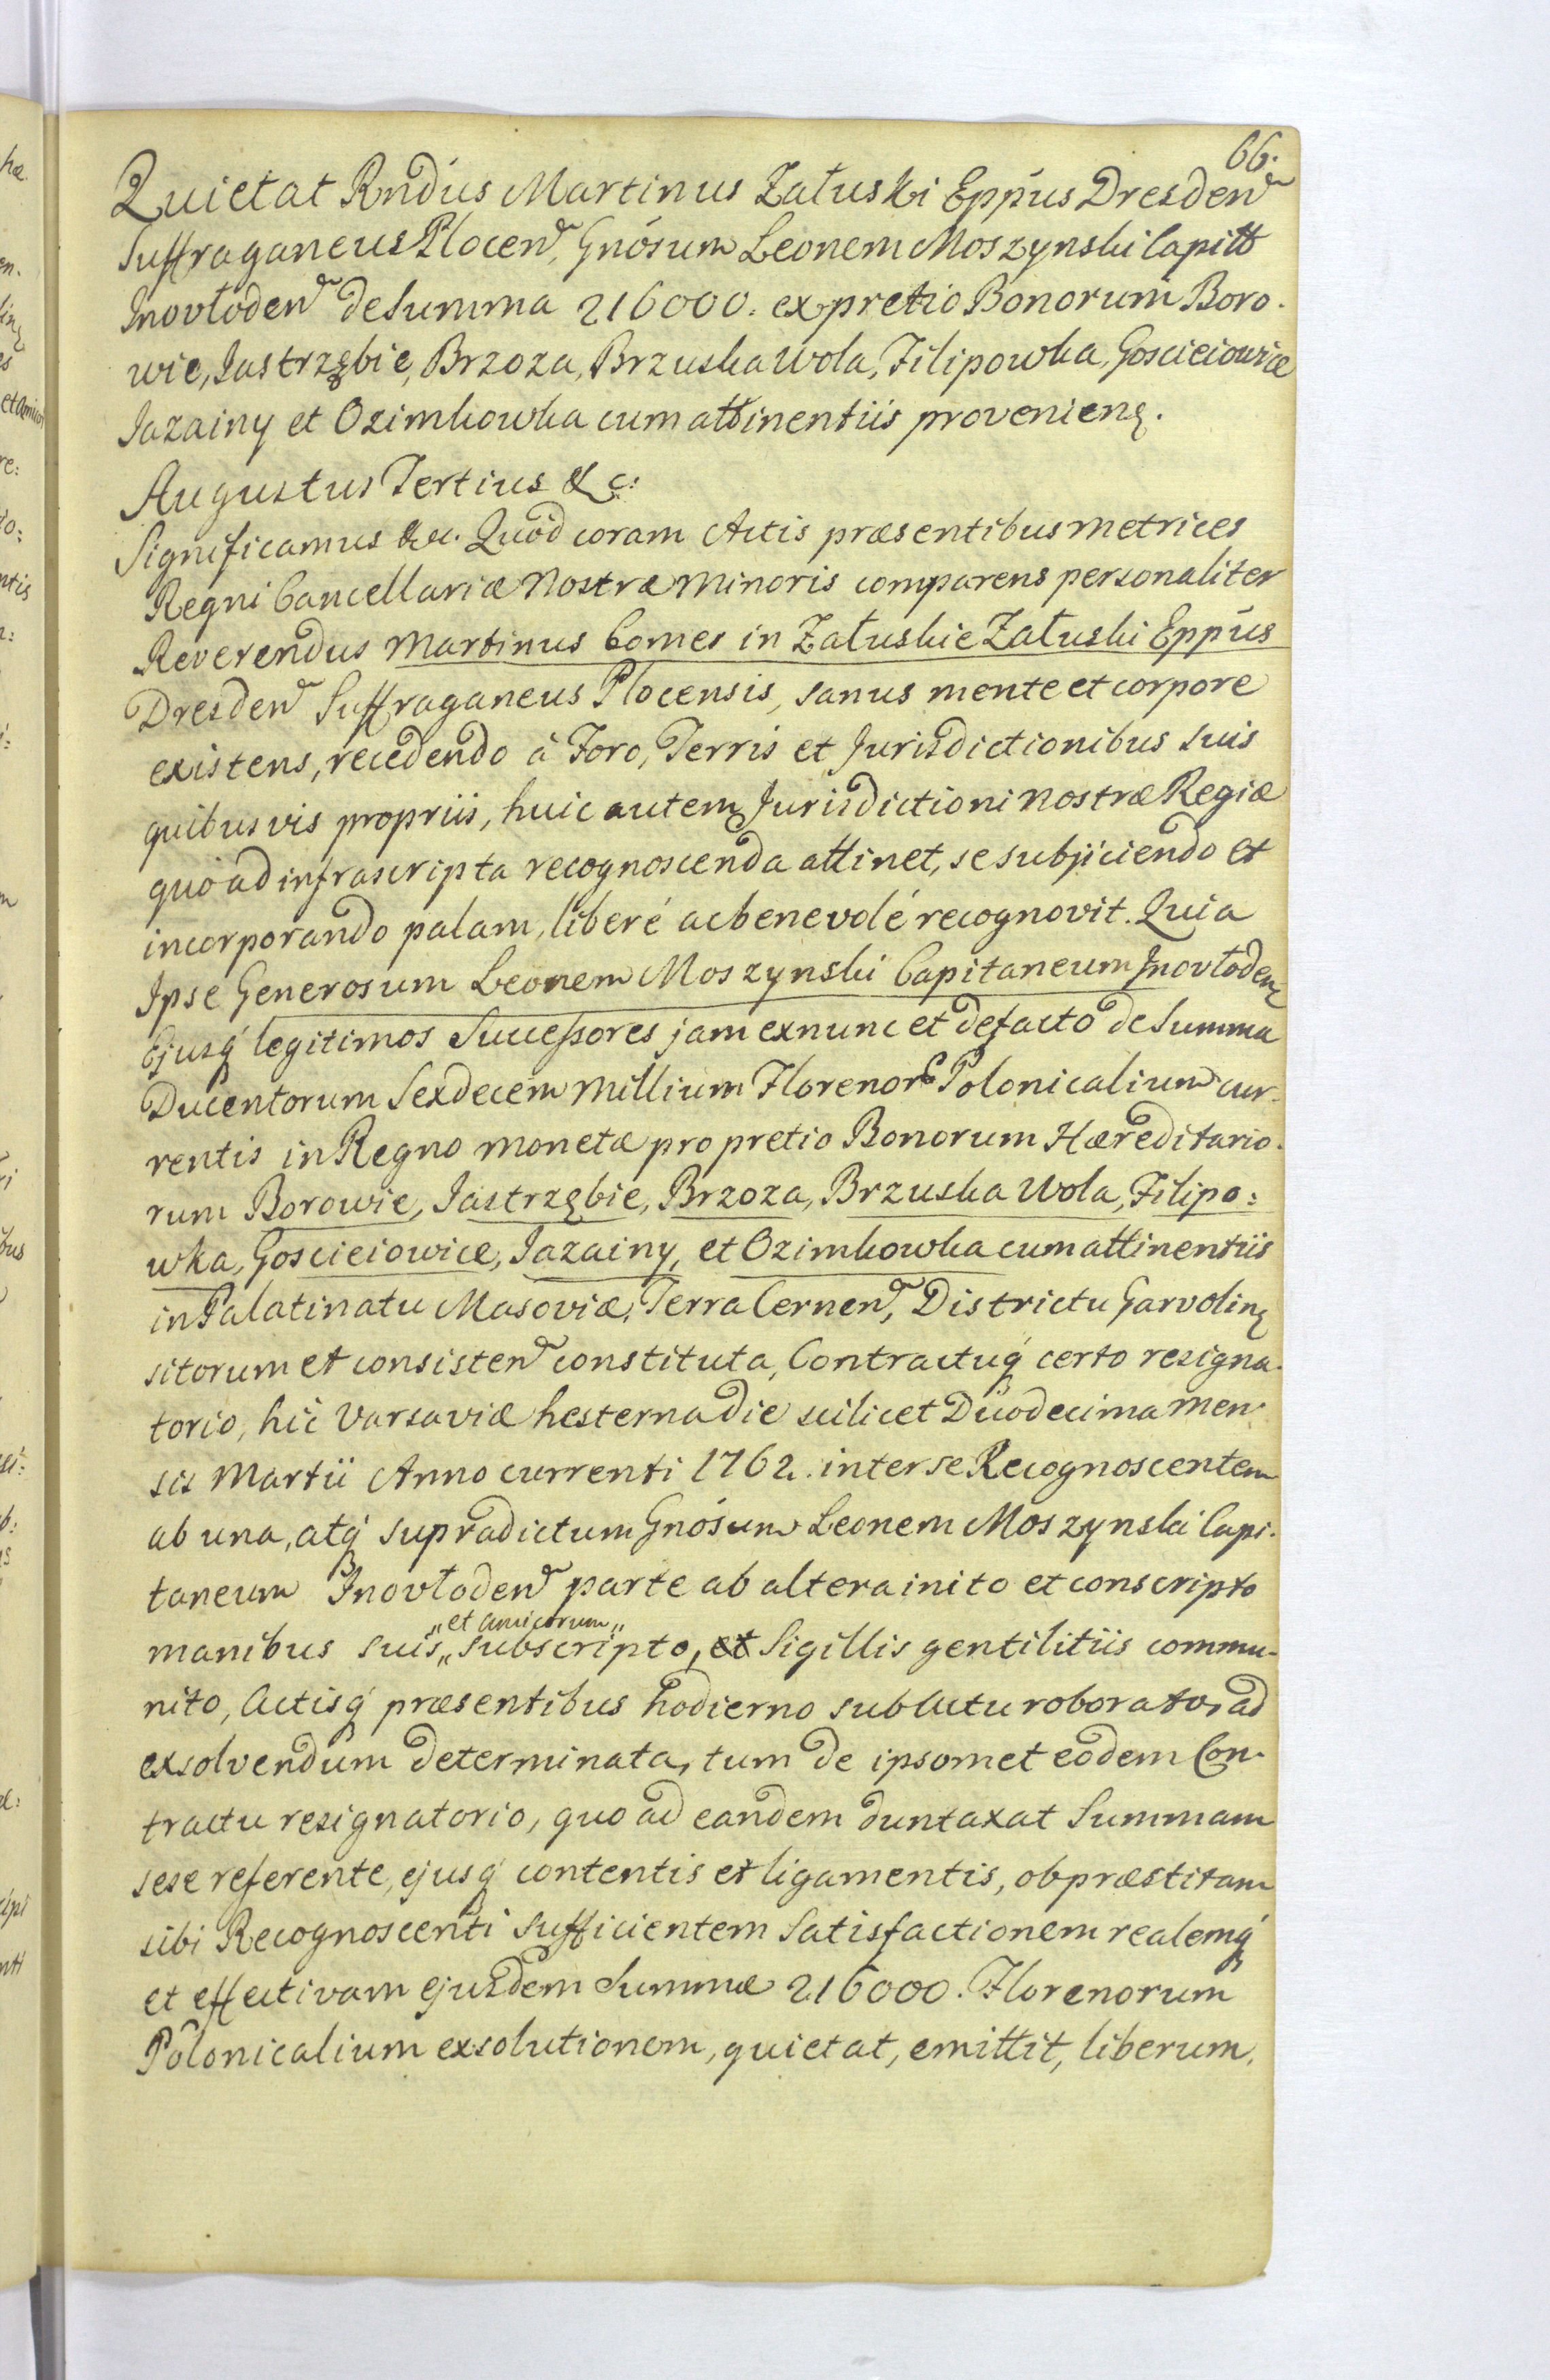 66.
Quietat Rndus Martinus Załuski Eppus Dresden
Suffraganeus Plocen, Gnosum Leonem Moszynski Capitt
Inovłoden de Summa 216000. ex pretio Bonorum Boro-
wie, Jastrzębie, Brzoza, Brzuska Wola, Filipowka, Goscieiowice
Jazainy et Ozimkowka cum attinentiis provenien.
Augustus Tertius &c:
Significamus &c. Quod coram Actis præsentibus Metrices
Regni Cancellariæ Nostræ Minoris comparens personaliter
Reverendus Martinus Comes in Załuskie Załuski Eppus
Dresden Suffraganeus Plocensis, sanus mente et corpore
existens, recedendo à Foro, Terris et Jurisdictionibus suis
quibusvis propriis, huic autem Jurisdictioni Nostræ Regiæ
quò ad infrascripta recognoscenda attinet, se subjiciendo et
incorporando palam, liberé ac benevolé recognovit. Quia
Ipse Generosum Leonem Moszynski Capitaneum Inovłoden
Ejusq́ legitimos Successores jam exnunc et defacto de Summa
Ducentorum Sexdecem Millium Florenor Polonicalium cur-
rentis in Regno monetæ pro pretio Bonorum Hæreditario-
rum Borowie, Jastrzębie, Brzoza, Brzuska Wola, Filipo:
wka, Goscieiowice, Jazainy, et Ozimkowka cum attinentiis
in Palatinatu Masoviæ, Terra Cernen, Districtu Garvolin
sitorum et consisten constituta, Contractuq́ certo resigna-
torio, hic Varsaviæ hesterna die scilicet Duodecima Men-
sis Martii Anno currenti 1762. inter se Recognoscentem
ab una, atq́ supradictum Gnosum Leonem Moszynski Capi-
taneum Inovłoden parte ab altera inito et conscripto
„et amicorum„
manibus suis„ subscripto, et Sigillis gentilitiis commu-
nito, Actisq́ præsentibus hodierno sub Actu roborato, ad
exsolvendum determinata, tum de ipsomet eodem Con-
tractu resignatorio, quo ad eandem duntaxat Summam
sese referente, ejusq́ contentis et ligamentis, ob præstitam
sibi Recognoscenti sufficientem Satisfactionem realemq́
et effectivam ejusdem Summæ 216000. Florenorum
Polonicalium exsolutionem, quietat, emittit, liberum,